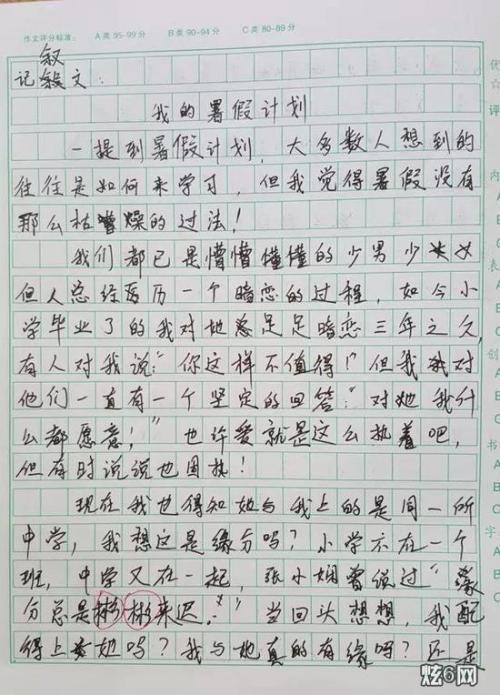 作文评分标准： A类 95-99分 B类 90-94分 C类 80-89分
叙
记叙文：
我的暑假计划
一提到暑假计划，大多数人想到的
往往是如何来学习，但我觉得暑假没有
那么枯燥的过法！
我们都已是懵懵懂懂的少男少女
但人总经历一个暗恋的过程，如今小
学毕业了的我对她足足暗恋三年之久，
有人对我说："你这样不值得！"但我对
他们一直有一个坚定的回答："对她我什
么都愿意！"也许爱就是这么执着吧，
但有时说说也固执！
现在我也得知她与我上的是同一所
中学，我想这是缘分吗？小学不在一个
班，中学又在一起，张小娴曾说过"缘
分总是彬彬来迟。"当回头想想，我配
得上她吗？我与她真的有缘吗？还是
优
评
内
表
创
A
B
C
书
A
B
C
字
炫6网